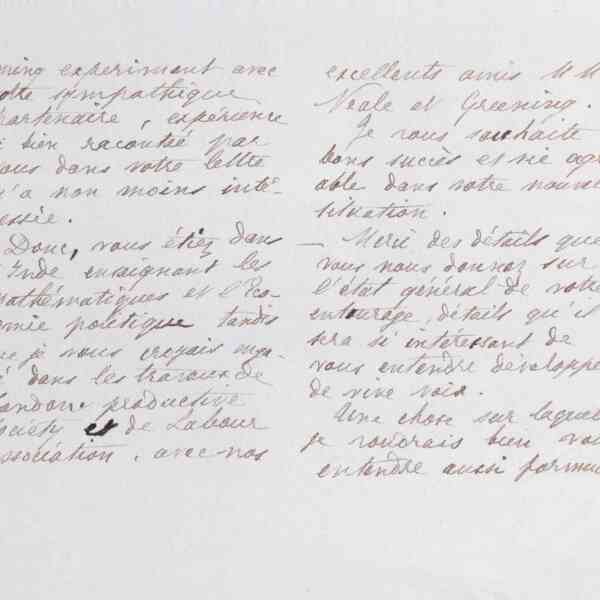 ming experiment avec
otre sympathique
partenaire, expérience
si bien racontée par
vous dans votre lettre
m'a non moins inté-
ressée.
Donc, vous étiez dans
l'Inde enseignant les
mathématiques et l'Eco-
nomie politique tandis
que je vous croyais enga-
gé dans les travaux de
London productive
Society et de Labour
Association, avec nos
excellents amis MM
Neale et Greening.
Je vous souhaite
bons succès et vie agré
able dans votre nouve
situation.
— Merci des détails que
vous nous donnez sur
l'état général de votre
entourage, détails qu'il
sera si intéressant de
vous entendre développe
de vive voix.
Une chose sur laquel
je voudrais bien vou
entendre aussi formu